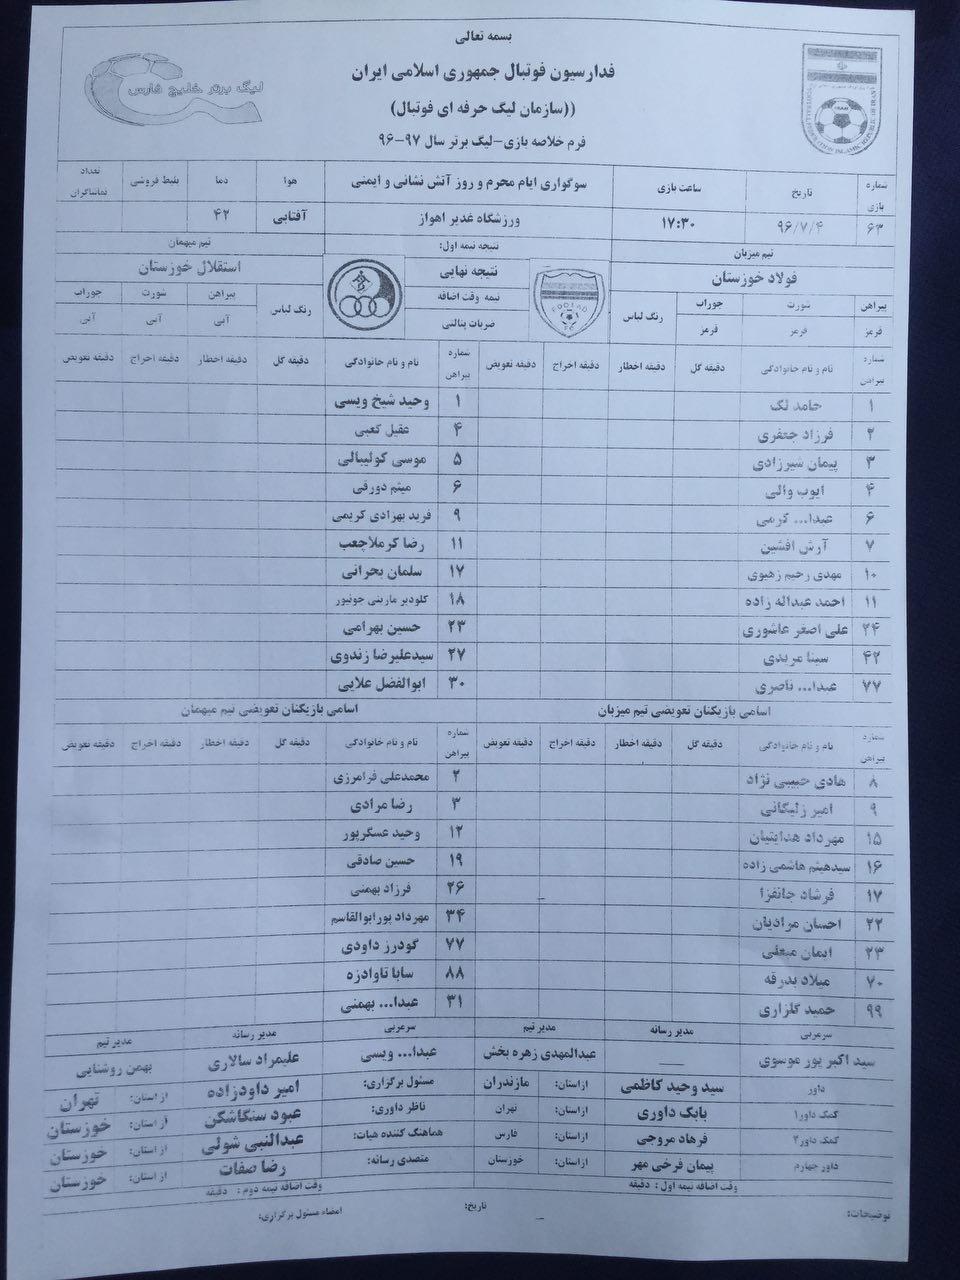 بسمه تعالی
فدارسیون فوتبال جمهوری اسلامی ایران
((سازمان لیگ حرفه ای فوتبال)
فرم خلاصه بازی-لیگ برتر سال ۹۷-۹۶
لیگ برتر خلیج فارس
شماره بازی تاریخ ساعت بازی سوگواری ایام محرم و روز آتش نشانی و ایمنی هوا دما بلیط فروشی تعداد تماشاگران
۶۳ ۹۶/۷/۴ ۱۷:۳۰ ورزشگاه غدیر اهواز آفتابی ۴۲
تیم میزبان نتیجه نیمه اول: تیم میهمان
فولاد خوزستان نتیجه نهایی استقلال خوزستان
پیراهن شورت جوراب رنگ لباس نیمه وقت اضافه رنگ لباس پیراهن شورت جوراب
قرمز قرمز قرمز ضربات پنالتی آبی آبی آبی
شماره پیراهن نام و نام خانوادگی دقیقه گل دقیقه اخطار دقیقه اخراج دقیقه تعویض شماره پیراهن نام و نام خانوادگی دقیقه گل دقیقه اخطار دقیقه اخراج دقیقه تعویض
۱ حامد لک ۱ وحید شیخ ویسی
۲ فرزاد جعفری ۴ عقیل کعبی
۳ پیمان شیرزادی ۵ موسی کولیبالی
۴ ایوب والی ۶ میثم دورقی
۶ عبدا... کرمی ۹ فرید بهزادی کریمی
۷ آرش افشین ۱۱ رضا کرملاچعب
۱۰ مهدی رحیم زهیوی ۱۷ سلمان بحرانی
۱۱ احمد عبداله زاده ۱۸ کلودیر مارینی جونیور
۲۴ علی اصغر عاشوری ۲۳ حسین بهرامی
۴۲ سینا مریدی ۲۷ سیدعلیرضا زندوی
۷۷ عبدا... ناصری ۳۰ ابوالفضل علایی
اسامی بازیکنان تعویضی تیم میزبان اسامی بازیکنان تعویضی تیم میهمان
شماره پیراهن نام و نام خانوادگی دقیقه گل دقیقه اخطار دقیقه اخراج دقیقه تعویض شماره پیراهن نام و نام خانوادگی دقیقه گل دقیقه اخطار دقیقه اخراج دقیقه تعویض
۸ هادی حبیبی نژاد ۲ محمدعلی فرامرزی
۹ امیر زلیگانی ۳ رضا مرادی
۱۵ مهرداد هدایتیان ۱۲ وحید عسگرپور
۱۶ سیدهیثم هاشمی زاده ۱۹ حسین صادقی
۱۷ فرشاد جانفزا ۲۶ فرزاد بهمنی
۲۲ احسان مرادیان ۳۴ مهرداد پورابوالقاسم
۲۳ ایمان مبعلی ۷۷ گودرز داودی
۷۰ میلاد بدرقه ۸۸ سابا تاوادزه
۹۹ حمید گلزاری ۳۱ عبدا... بهمنی
سرمربی مدیر رسانه مدیر تیم سرمربی مدیر رسانه مدیر تیم
سید اکبر پور موسوی عبدالمهدی زهره بخش عبدا... ویسی علیمراد سالاری بهمن روشنایی
داور سید وحید کاظمی ازاستان: مازندران مسئول برگزاری: امیر داودزاده از استان: تهران
کمک داور۱ بابک داوری ازاستان: تهران ناظر داوری: عبود سنگاشکن از استان: خوزستان
کمک داور۲ فرهاد مروجی ازاستان: فارس هماهنگ کننده هیات: عبدالنبی شولی از استان: خوزستان
داور چهارم پیمان فرخی مهر ازاستان: خوزستان متصدی رسانه: رضا صفات از استان: خوزستان
وقت اضافه نیمه اول : دقیقه وقت اضافه نیمه دوم : دقیقه
توضیحات: تاریخ: امضاء مسئول برگزاری: